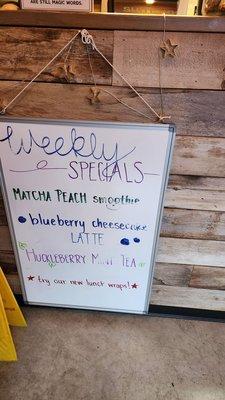 ARE STILL MAGIC WORDS.
Weekly
SPECIALS
MATCHA PEACH smoothie
blueberry cheesecake
LATTE
HUCKLEBERRY MINT TEA
★ try our new lunch wraps! ★